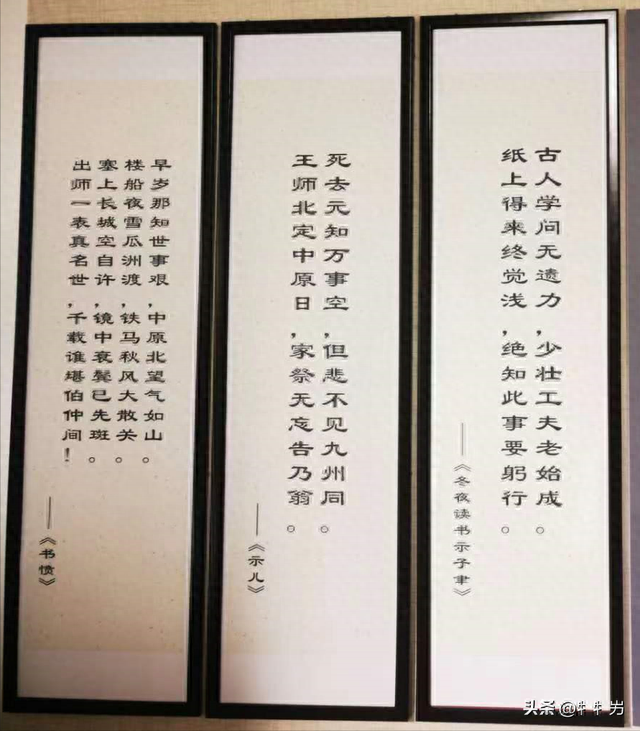 古人学问无遗力，少壮工夫老始成。
纸上得来终觉浅，绝知此事要躬行。
——《冬夜读书示子聿》
死去元知万事空，但悲不见九州同。
王师北定中原日，家祭无忘告乃翁。
——《示儿》
早岁那知世事艰，中原北望气如山。
楼船夜雪瓜洲渡，铁马秋风大散关。
塞上长城空自许，镜中衰鬓已先斑。
出师一表真名世，千载谁堪伯仲间！
——《书愤》
头条